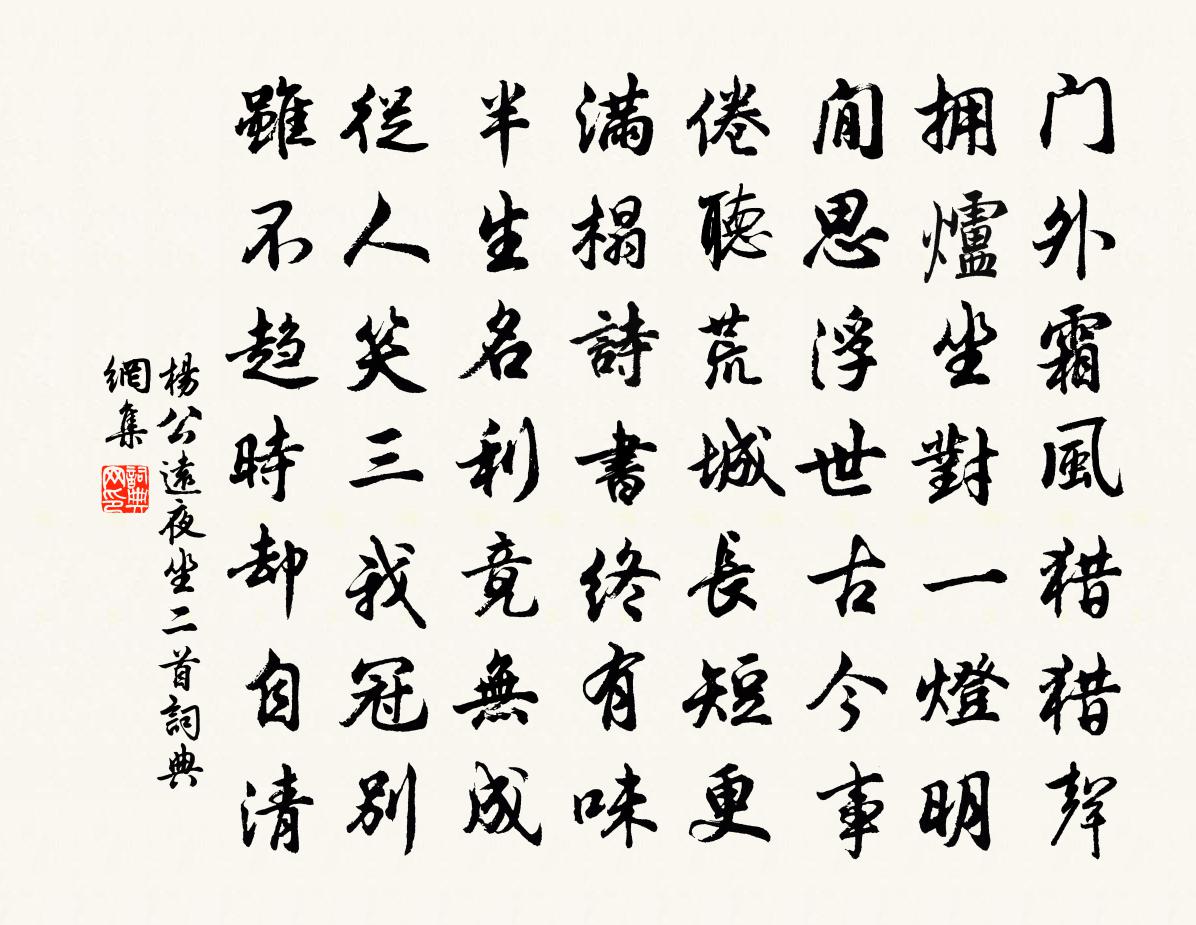 门外霜風猎猎聲
拥爐坐對一燈明
閒思浮世古今事
倦聽荒城長短更
滿榻詩書終有味
半生名利竟無成
從人笑三我冠別
雖不趋時却自清
楊公遠夜坐二首詞典
網集
詞典
网印